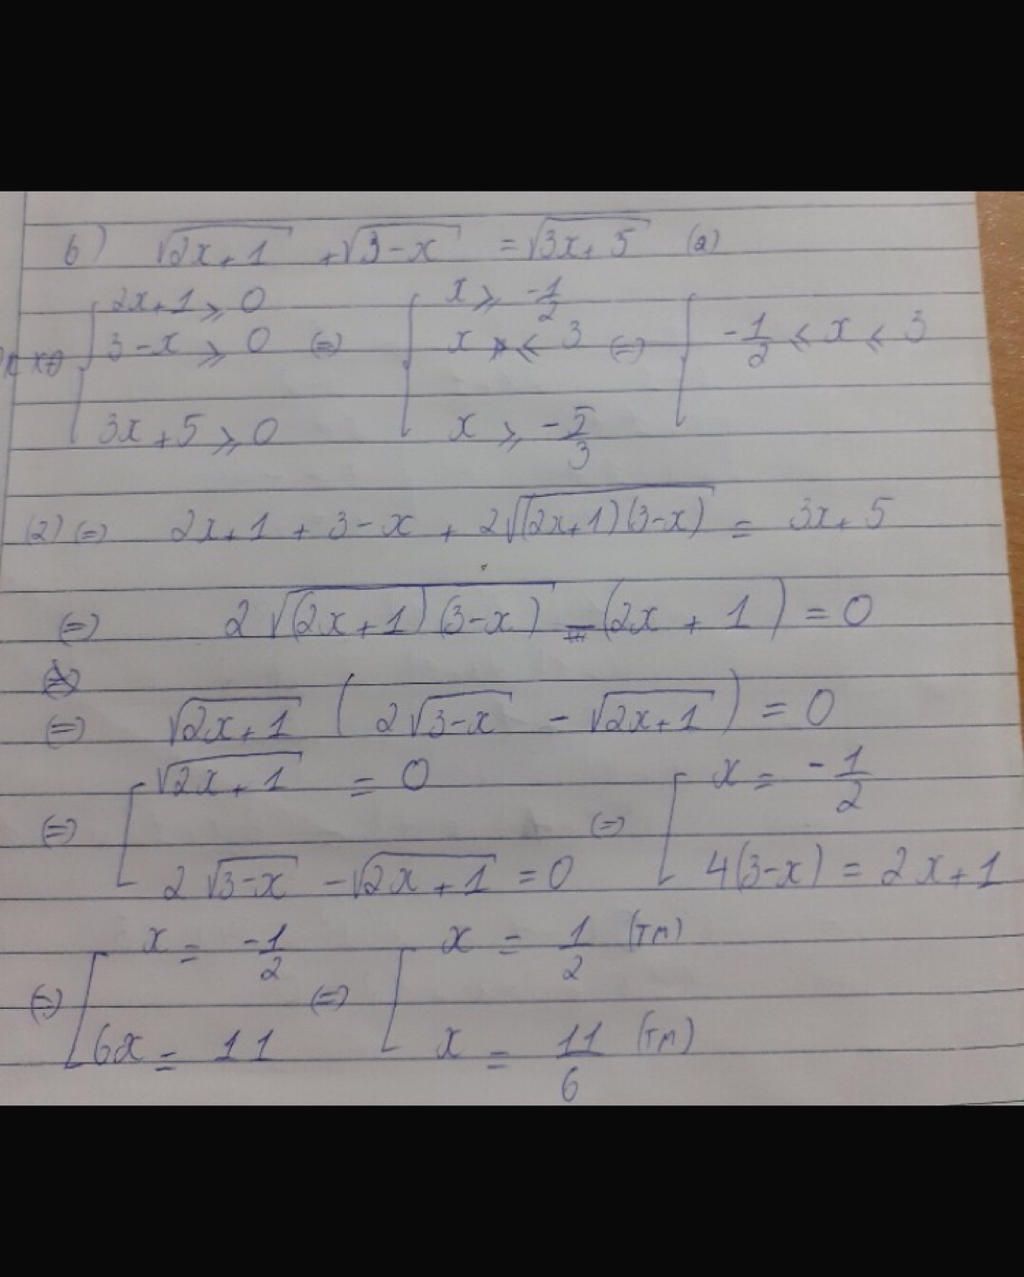 b) √(2x+1) + √(3-x) = √(3x+5) (2)
{ 2x+1 ⩾ 0
3-x ⩾ 0
3x+5 ⩾ 0 <=> { x ⩾ -1/2
x ⩽ 3
x ⩾ -5/3 <=> { -1/2 ⩽ x ⩽ 3
(2) <=> 2x+1 + 3-x + 2√((2x+1)(3-x)) = 3x+5
<=> 2√((2x+1)(3-x)) - (2x + 1) = 0
<=> √(2x+1) ( 2√(3-x) - √(2x+1) ) = 0
<=> [ √(2x+1) = 0
2√(3-x) - √(2x+1) = 0 <=> [ x = -1/2
4(3-x) = 2x+1
<=> [ x = -1/2
6x = 11 <=> [ x = 1/2 (TM)
x = 11/6 (TM)